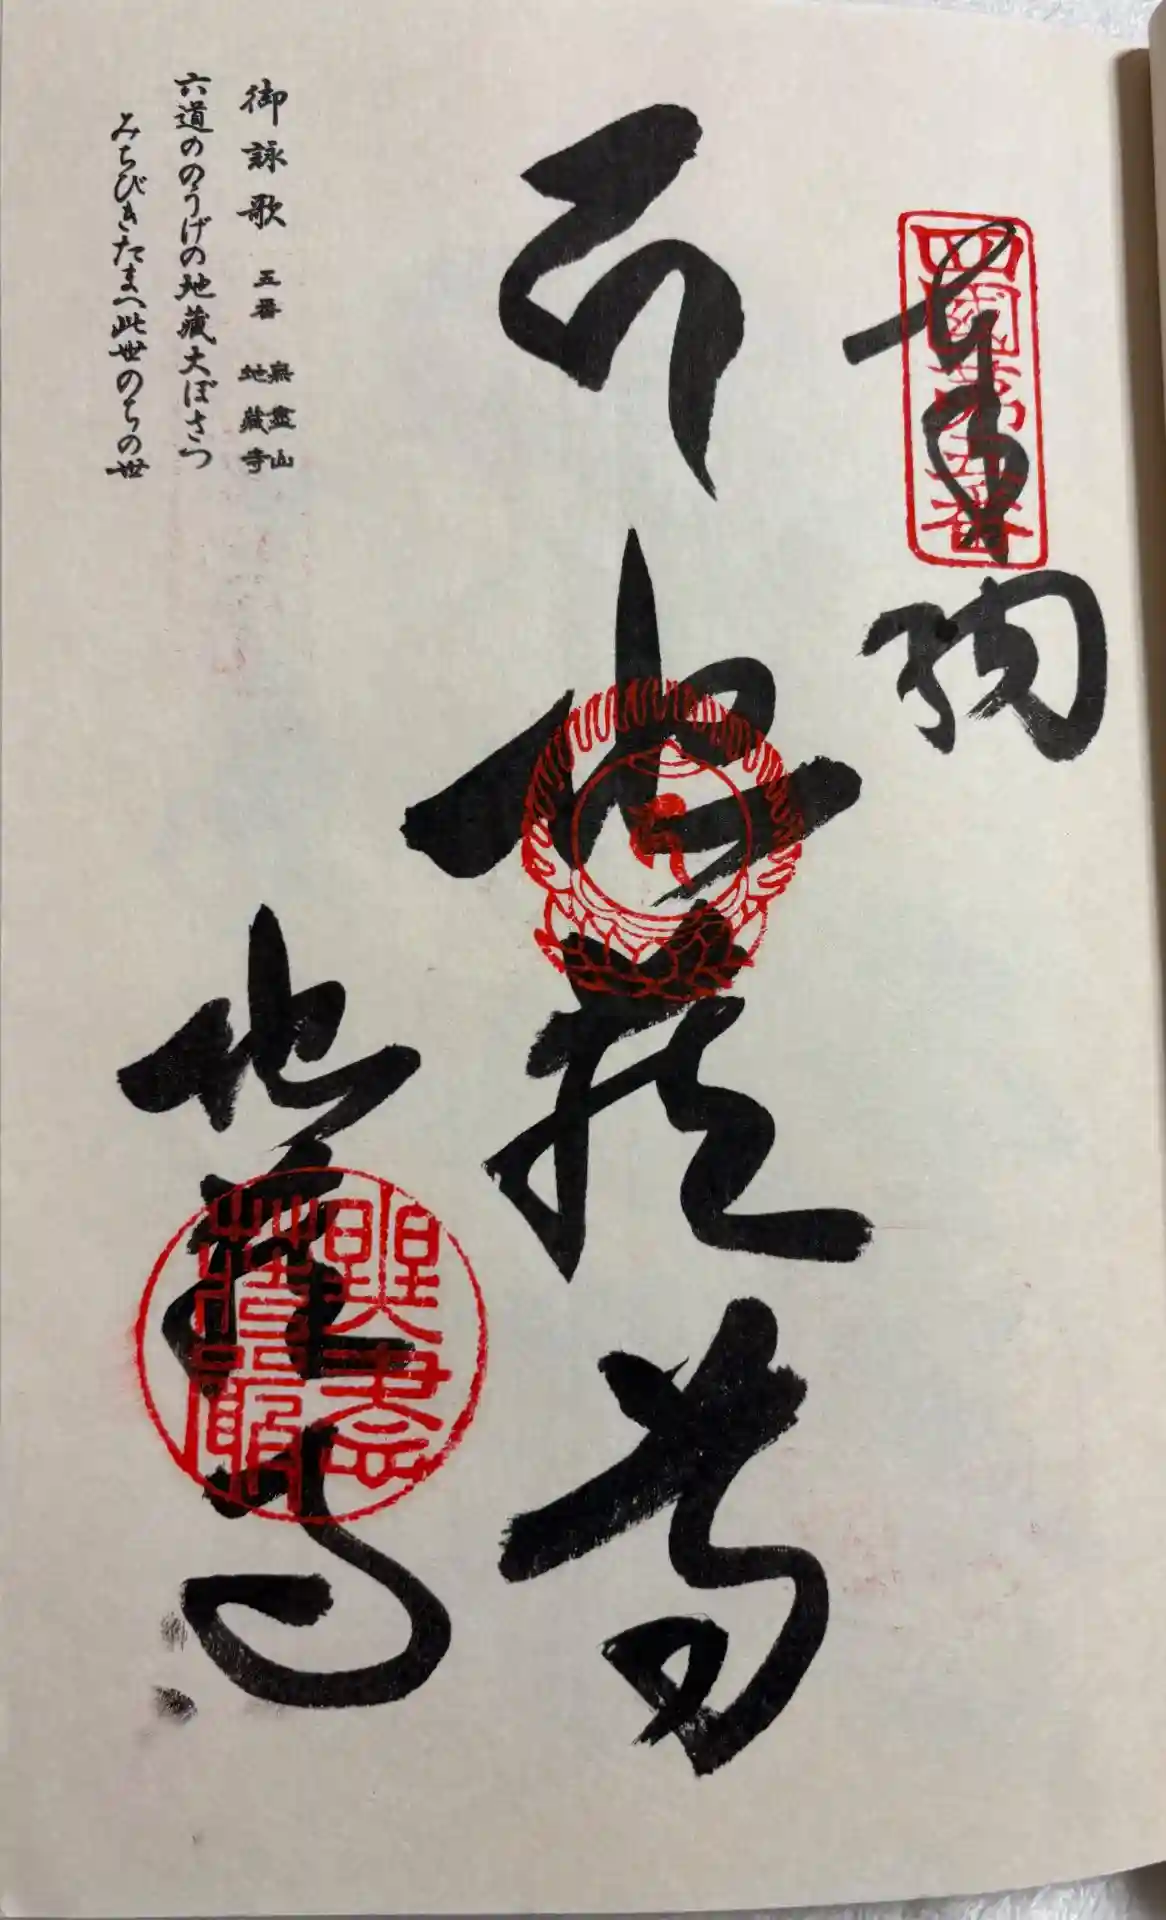 奉納
四國第五番
地蔵尊
地蔵寺
無盡荘嚴
御詠歌 五番 無盡山 地藏寺
六道ののうげの地藏大ぼさつ
みちびきたまへ此世のちの世